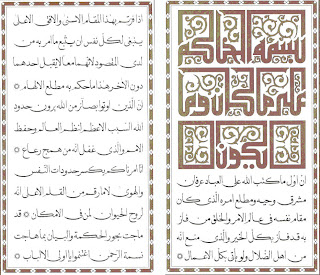 بسمه الحاكم
على ما كان وما
يكون
ان اول ما كتب الله على العباد عرفان
مشرق وحيه ومطلع امره الذي كان
مقام نفسه في عالم الامر والخلق من فاز
به قد فاز بكل الخير والذي منع انه
من اهل الضلال ولو يأتي بكل الاعمال
اذا فزتم بهذا المقام الاسنى والافق الاعلى
ينبغي لكل نفس ان يتبع ما امر به من
لدى المقصود لانهما معا لا يقبل احدهما
دون الآخر هذا ما حكم به مطلع الالهام
ان الذين اوتوا بصائر من الله يرون حدود
الله السبب الاعظم لنظم العالم وحفظ
الامم والذي غفل انه من همج رعاع
انا امرناكم بكسر حدودات النفس
والهوى لا ما رقم من القلم الاعلى انه
لروح الحيوان لمن في الامكان قد
ماجت بحور الحكمة والبيان بما هاجت
نسمة الرحمن اغتنموا يا اولي الالباب